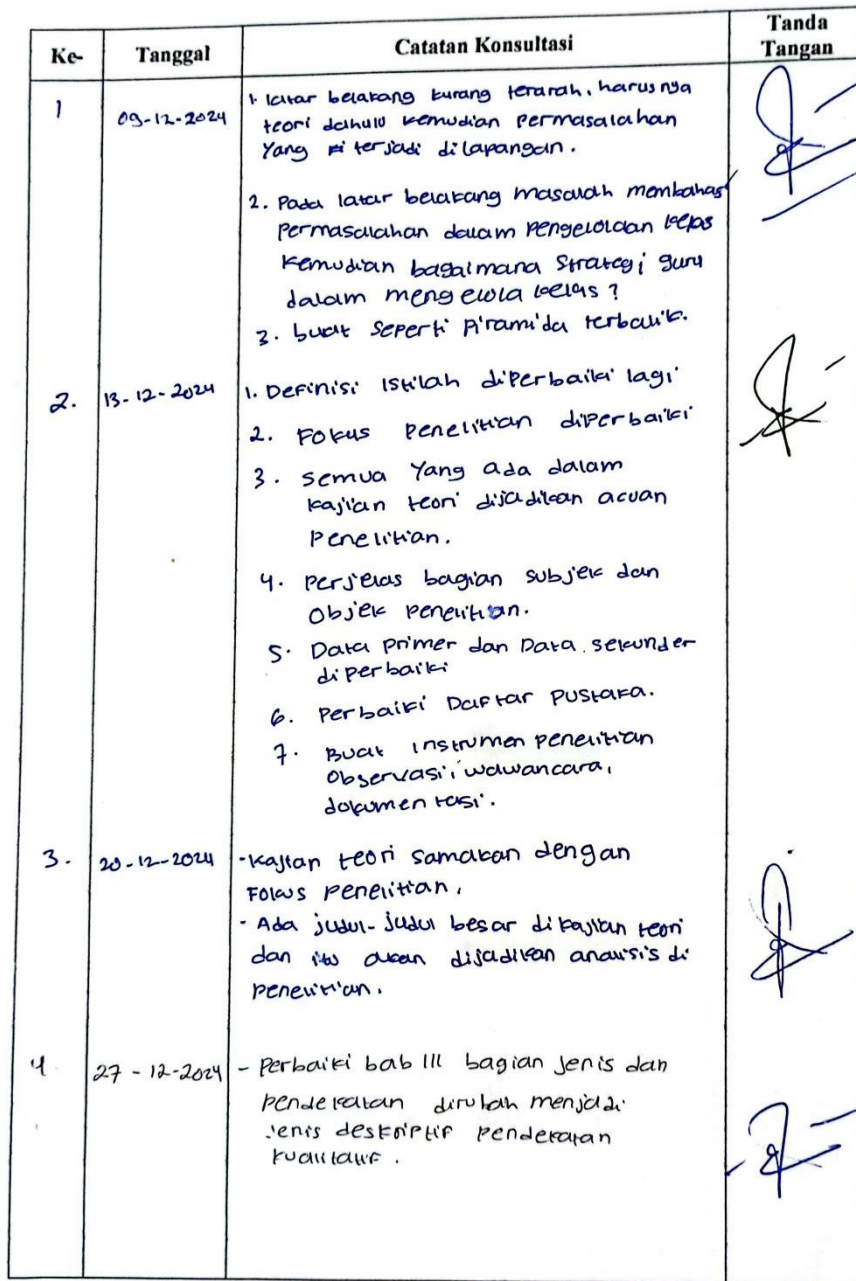 Ke- Tanggal Catatan Konsultasi Tanda
Tangan
1 09-12-2024 1. latar belakang kurang terarah, harusnya
teori dahulu kemudian permasalahan
yang terjadi dilapangan.
2. Pada latar belakang masalah membahas
permasalahan dalam pengelolaan kelas
kemudian bagaimana strategi guru
dalam mengelola kelas?
3. buat seperti piramida terbalik.
2. 13-12-2024 1. Definisi istilah diperbaiki lagi
2. Fokus penelitian diperbaiki
3. semua yang ada dalam
kajian teori dijadikan acuan
penelitian.
4. perjelas bagian subjek dan
objek penelitian.
5. Data primer dan Data sekunder
diperbaiki
6. Perbaiki Daftar Pustaka.
7. Buat instrumen penelitian
observasi, wawancara,
dokumentasi.
3. 20-12-2024 - kajian teori samakan dengan
Fokus penelitian.
- Ada judul-judul besar dikajian teori
dan itu akan dijadikan analisis di
penelitian.
4. 27-12-2024 - perbaiki bab III bagian jenis dan
pendekatan dirubah menjadi
jenis deskriptif pendekatan
kualitatif.